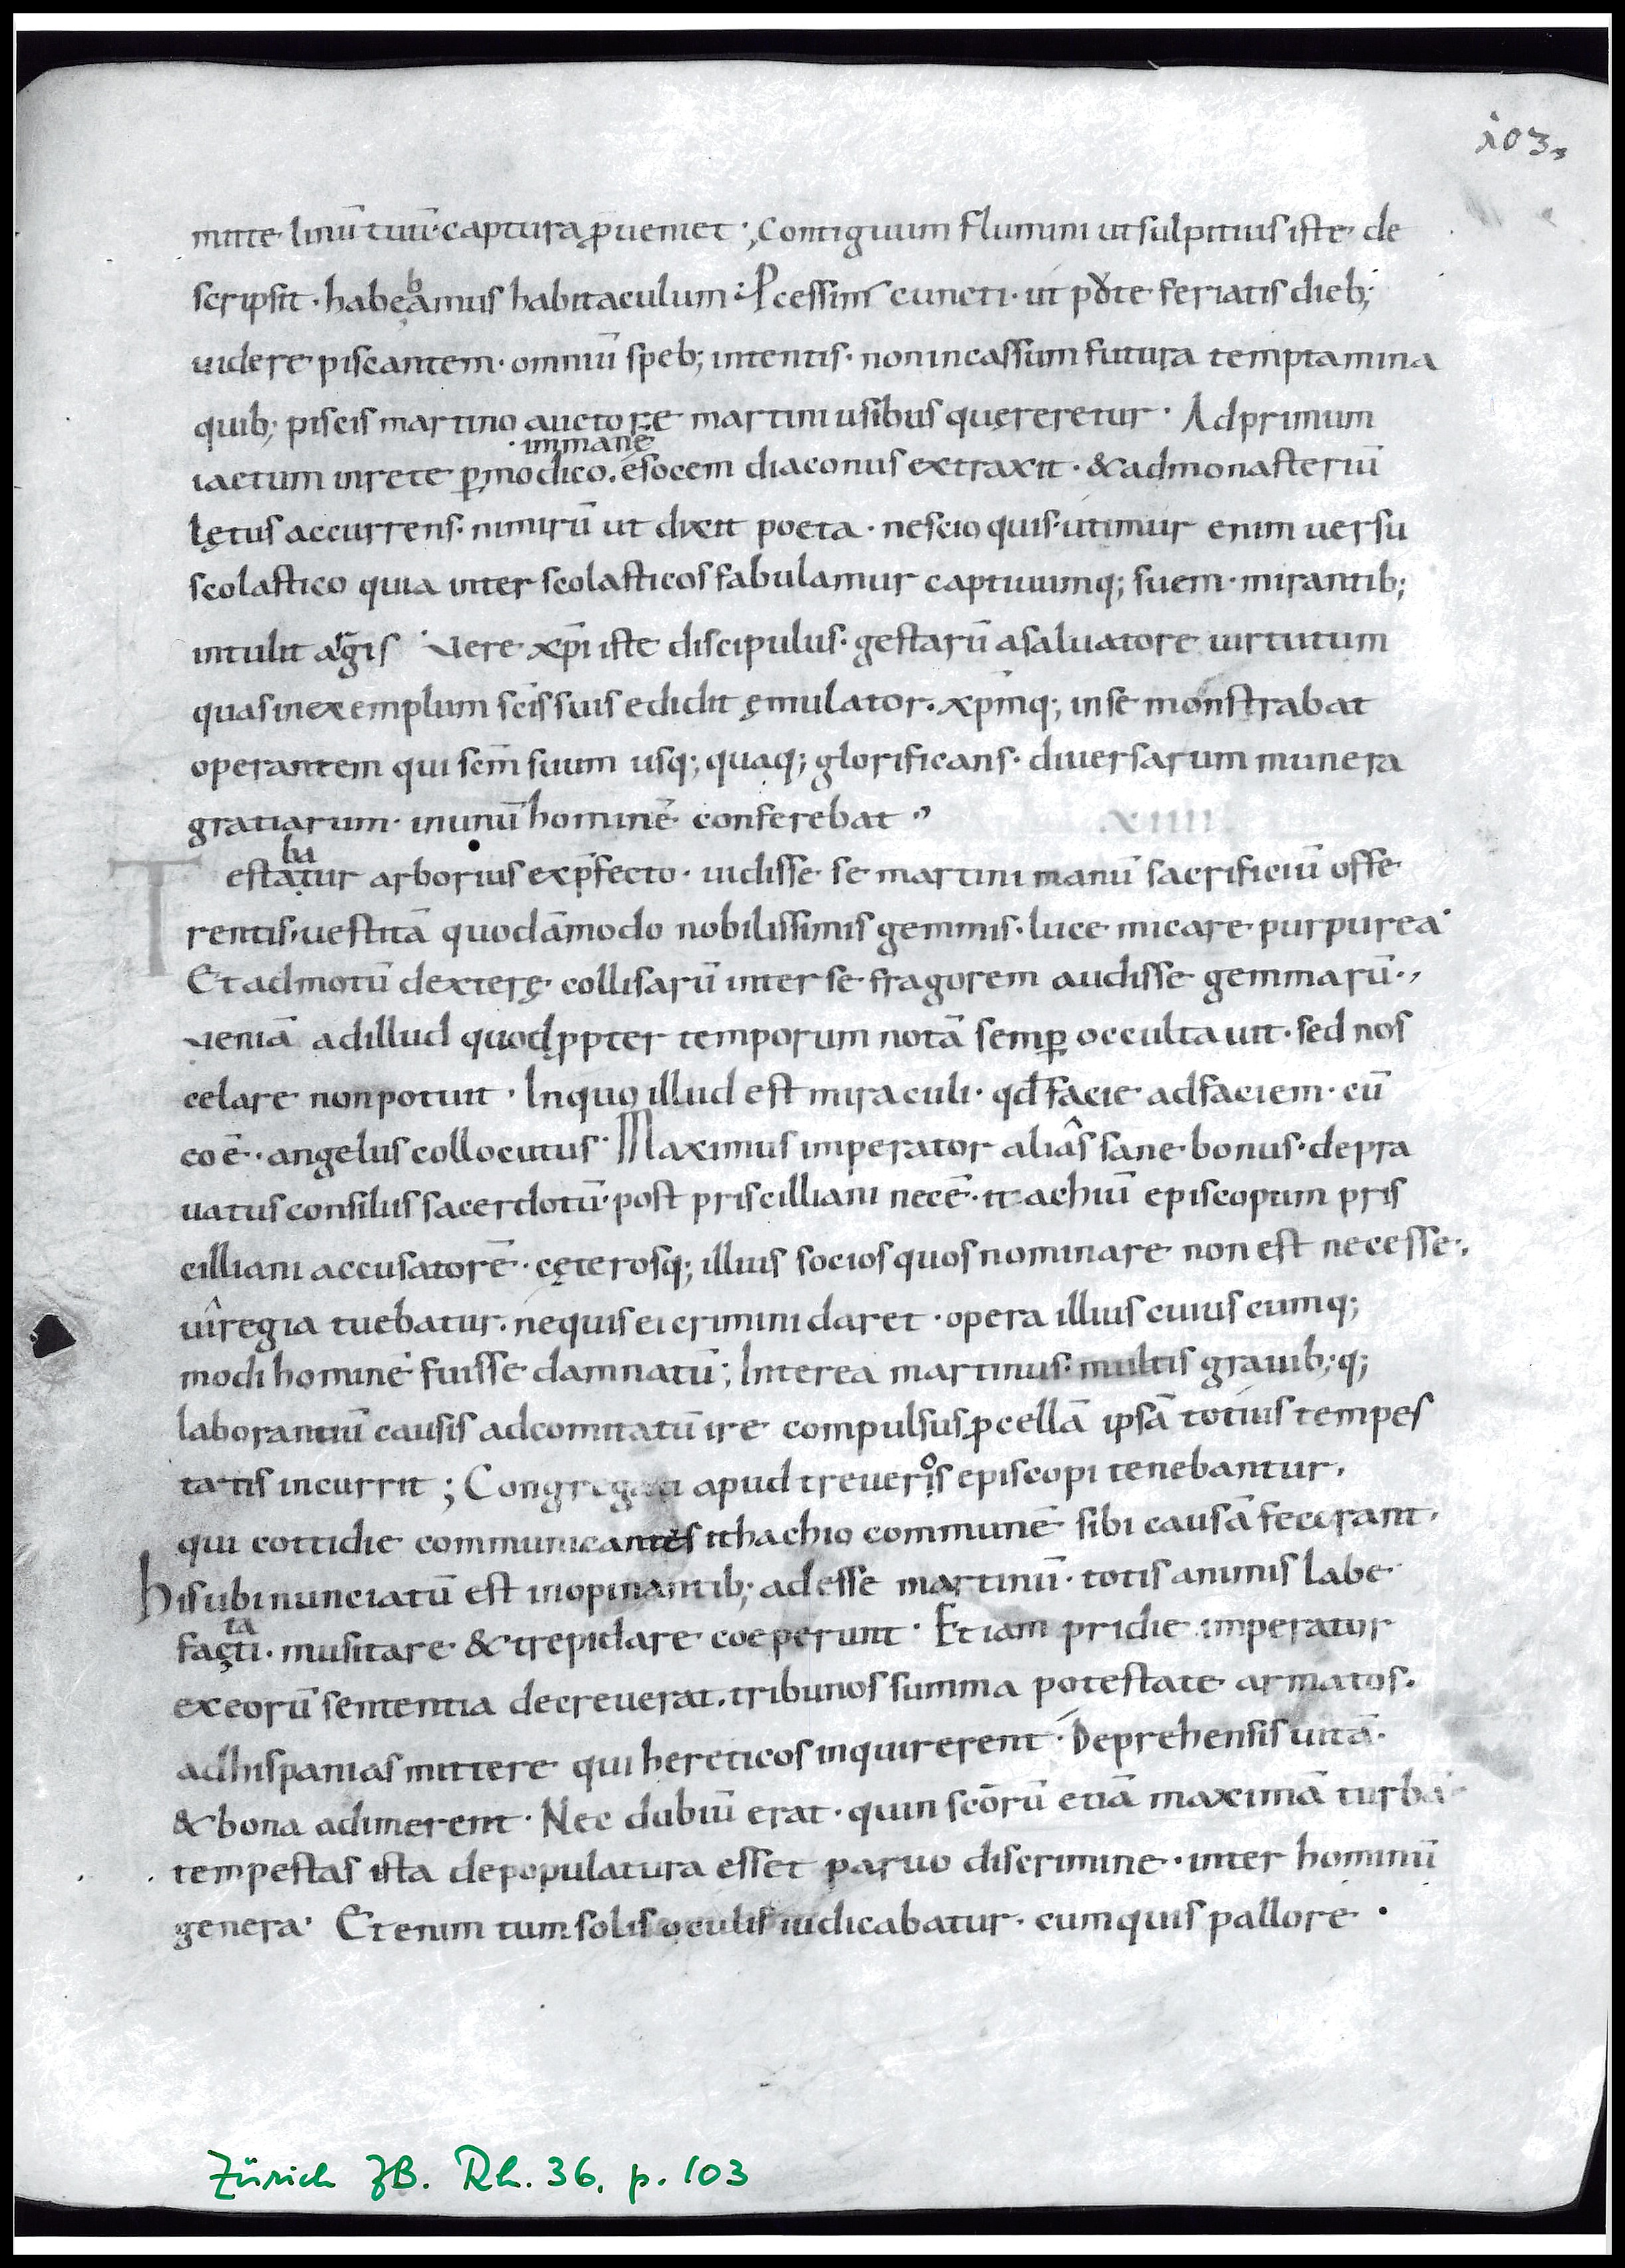 103
mitte linū tuū· captura ꝓueniet ·; Contiguum flumini ut sulpitius iste de
scripsit · habebamus habitaculum ; P̄cessim᾽ cuncti · ut p̄dte feriatis dieb;
uidere piscantem · omniū speb; intentis · non incassum futura temptamina
quib; piscis martino auctore martini usibus quęreretur · Ad primum
· immanē
iactum in rete ꝑmodico . esocem diaconus extraxit · & ad monasteriū
lętus accurrens · nimirū ut dixit poeta · nescio quis · utimur enim uersu
scolastico quia inter scolasticos fabulamur captiuumq; suem · mirantib;
intulit argis Vere xp̄i iste discipulus · gestarū a saluatore uirtutum
quas in exemplum scīs suis edidit ęmulator . xp̄mq; in se monstrabat
operantem qui scm̄ suum usq; quaq; glorificans · diuersarum munera
gratiarum · in unū hominē conferebat ·
XIIII
ba
Testatur arborius ex p̄fecto · uidisse se martini manū sacrificiū offe
rentis · uestitā quodāmodo nobilissimis gemmis · luce micare purpurea ·
Et ad motū dexterę collisarū inter se fragorem audisse gemmarū · ,
Veniā ad illud quod ꝓpter temporum notā semꝑ occultauit · sed nos
celare non potuit · In quo illud est miraculi · qd̄ facie ad faciem · cū
eo ē · angelus collocutus · Maximus imperator aliâs sane bonus · depra
uatus consiliis sacerdotū · post priscilliani necē · itachiū episcopum pris
cilliani accusatorē · cęterosq; illius socios quos nominare non est necesse ·
uî regia tuebatur . nequis ei crimini daret · opera illius cuiuscumq;
modi hominē fuisse damnatū ; Interea martinus · multis grauib; q;
laborantiū causis ad comitatū ire compulsus ꝓcellā ipsā totius tempes
tatis incurrit ; Congregati apud treueros episcopi tenebantur .
qui cottidie communicantes ithachio communē sibi causā fecerant ·
his ubi nunciatū est inopinantib; adesse martinū · totis animis labe
ta
facti · musitare & trepidare coeperunt · Et iam pridie imperator
ex eorū sententia decreuerat . tribunos summa potestate armatos .
ad hispanias mittere qui hereticos inquirerent · Deprehensis uitā ·
& bona adimerent · Nec dubiū erat · quin scōrū etiā maximā turbā
tempestas ista depopulatura esset paruo discrimine · inter hominū
genera · Etenim tum solis oculis iudicabatur · cum quis pallore ·
Zürich ZB. Rh. 36, p. 103